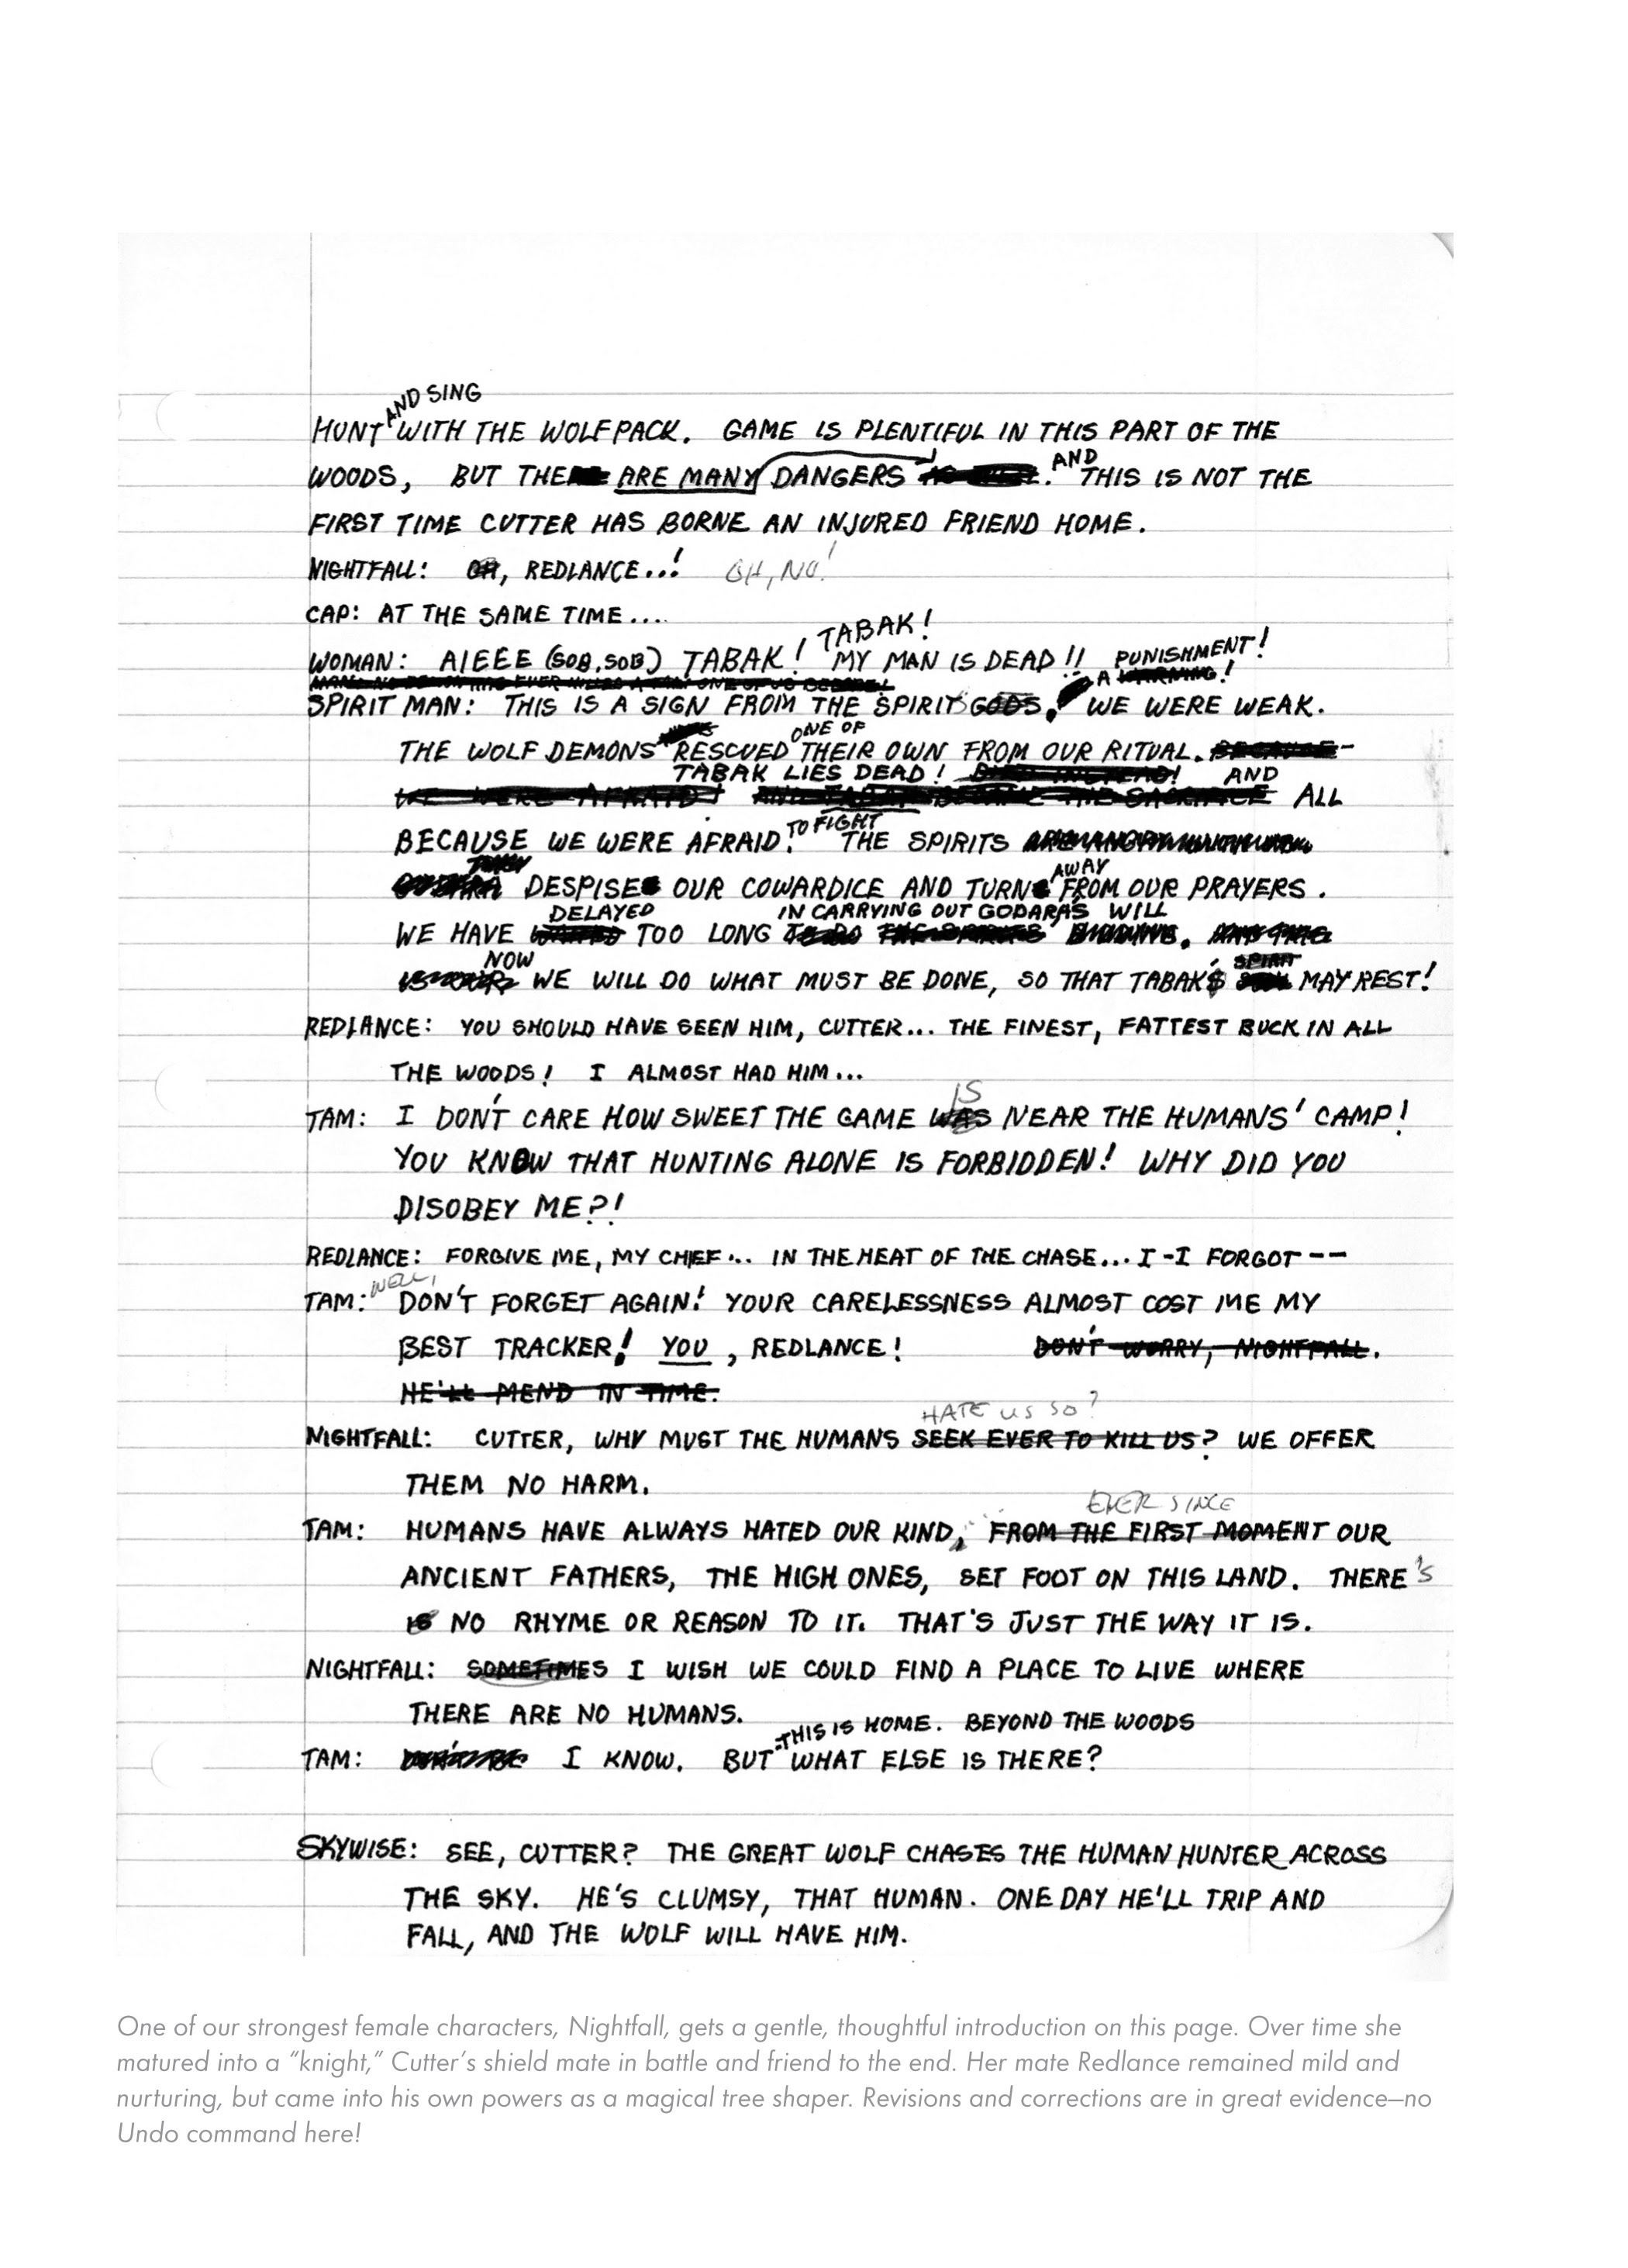 AND SING
HUNT WITH THE WOLFPACK. GAME IS PLENTIFUL IN THIS PART OF THE
AND
WOODS, BUT THE ARE MANY DANGERS . THIS IS NOT THE
FIRST TIME CUTTER HAS BORNE AN INJURED FRIEND HOME.
NIGHTFALL: OH, REDLANCE...! OH, NO!
CAP: AT THE SAME TIME....
TABAK!
WOMAN: AIEEE (SOB, SOB) TABAK! MY MAN IS DEAD!! PUNISHMENT!
A WARNING!
SPIRIT MAN: THIS IS A SIGN FROM THE SPIRITS GODS, WE WERE WEAK.
ONE OF
THE WOLF DEMONS RESCUED THEIR OWN FROM OUR RITUAL. BECAUSE
TABAK LIES DEAD! DIED INSTEAD! AND
WE WERE AFRAID! AND TABAK BECAME THE SACRIFICE ALL
TO FIGHT
BECAUSE WE WERE AFRAID. THE SPIRITS
AWAY
DESPISE OUR COWARDICE AND TURN FROM OUR PRAYERS.
DELAYED IN CARRYING OUT GODARA'S WILL
WE HAVE WAITED TOO LONG TO DO THE SPIRITS' BIDDING.
NOW SPIRIT
WE WILL DO WHAT MUST BE DONE, SO THAT TABAK'S MAY REST!
REDLANCE: YOU SHOULD HAVE SEEN HIM, CUTTER... THE FINEST, FATTEST BUCK IN ALL
THE WOODS! I ALMOST HAD HIM...
IS
TAM: I DON'T CARE HOW SWEET THE GAME WAS NEAR THE HUMANS' CAMP!
YOU KNOW THAT HUNTING ALONE IS FORBIDDEN! WHY DID YOU
DISOBEY ME?!
REDLANCE: FORGIVE ME, MY CHIEF... IN THE HEAT OF THE CHASE... I-I FORGOT--
WELL,
TAM: DON'T FORGET AGAIN! YOUR CARELESSNESS ALMOST COST ME MY
BEST TRACKER! YOU, REDLANCE! DON'T WORRY, NIGHTFALL.
HE'LL MEND IN TIME.
HATE US SO?
NIGHTFALL: CUTTER, WHY MUST THE HUMANS SEEK EVER TO KILL US? WE OFFER
THEM NO HARM.
EVER SINCE
TAM: HUMANS HAVE ALWAYS HATED OUR KIND, FROM THE FIRST MOMENT OUR
ANCIENT FATHERS, THE HIGH ONES, SET FOOT ON THIS LAND. THERE'S
IS NO RHYME OR REASON TO IT. THAT'S JUST THE WAY IT IS.
NIGHTFALL: SOMETIMES I WISH WE COULD FIND A PLACE TO LIVE WHERE
THERE ARE NO HUMANS.
THIS IS HOME. BEYOND THE WOODS
TAM: I KNOW. BUT WHAT ELSE IS THERE?
SKYWISE: SEE, CUTTER? THE GREAT WOLF CHASES THE HUMAN HUNTER ACROSS
THE SKY. HE'S CLUMSY, THAT HUMAN. ONE DAY HE'LL TRIP AND
FALL, AND THE WOLF WILL HAVE HIM.
One of our strongest female characters, Nightfall, gets a gentle, thoughtful introduction on this page. Over time she
matured into a “knight,” Cutter’s shield mate in battle and friend to the end. Her mate Redlance remained mild and
nurturing, but came into his own powers as a magical tree shaper. Revisions and corrections are in great evidence—no
Undo command here!